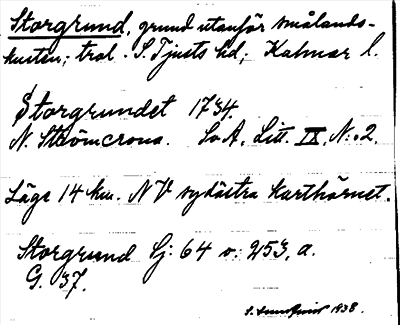 Storgrund, grund utanför smålands-
kusten; trol. S. Tjusts hd; Kalmar l.
Storgrundet 1734.
N. Strömcrona. SvA, Litt. IX, N:o 2.
Läge 14 km. NV sydöstra karthörnet.
Storgrund Sj: 64 v: 253, a.
G. 37.
1938.